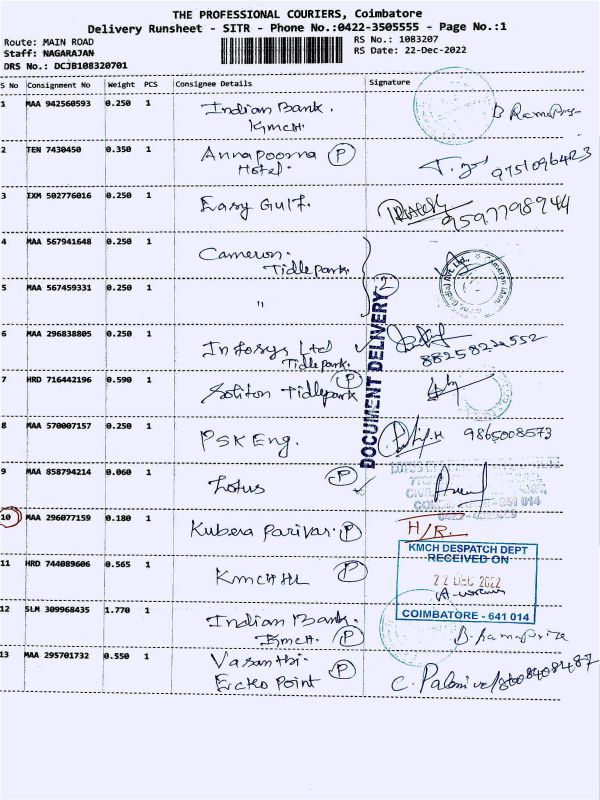 THE PROFESSIONAL COURIERS, Coimbatore
Delivery Runsheet - SITR - Phone No.:0422-3505555 - Page No.:1
Route: MAIN ROAD
RS No.: 1083207
Staff: NAGARAJAN
RS Date: 22-Dec-2022
DRS No.: DCJB108320701
S No Consignment No Weight PCS Consignee Details Signature
1 MAA 942560593 0.250 1 Indian Bank.
KMCH.
2 TEN 7430450 0.350 1 Annapoorna P
Hotel. 9751096423
3 IXM 502776016 0.250 1 Easy Gulf. 9597798944
4 MAA 567941648 0.250 1 Cameron.
Tidlepark.
5 MAA 567459331 0.250 1 " 2
DOCUMENT DELIVERY
6 MAA 296838805 0.250 1 Infosys Ltd
Tidlepark.
7 HRD 716442196 0.590 1 Soliton Tidlepark P
8 MAA 570007157 0.250 1 PSK Eng. 9865008573
9 MAA 858794214 0.060 1 Lotus P
10 MAA 296077159 0.180 1 Kubera Parivar. P H/R.
KMCH DESPATCH DEPT
RECEIVED ON
22 DEC 2022
COIMBATORE - 641 014
11 HRD 744089606 0.565 1 KMCHHL P
12 SLM 309968435 1.770 1 Indian Bank.
KMCH. P
13 MAA 295701732 0.550 1 Vasanthi. P
Ecko Point C. Palanivel